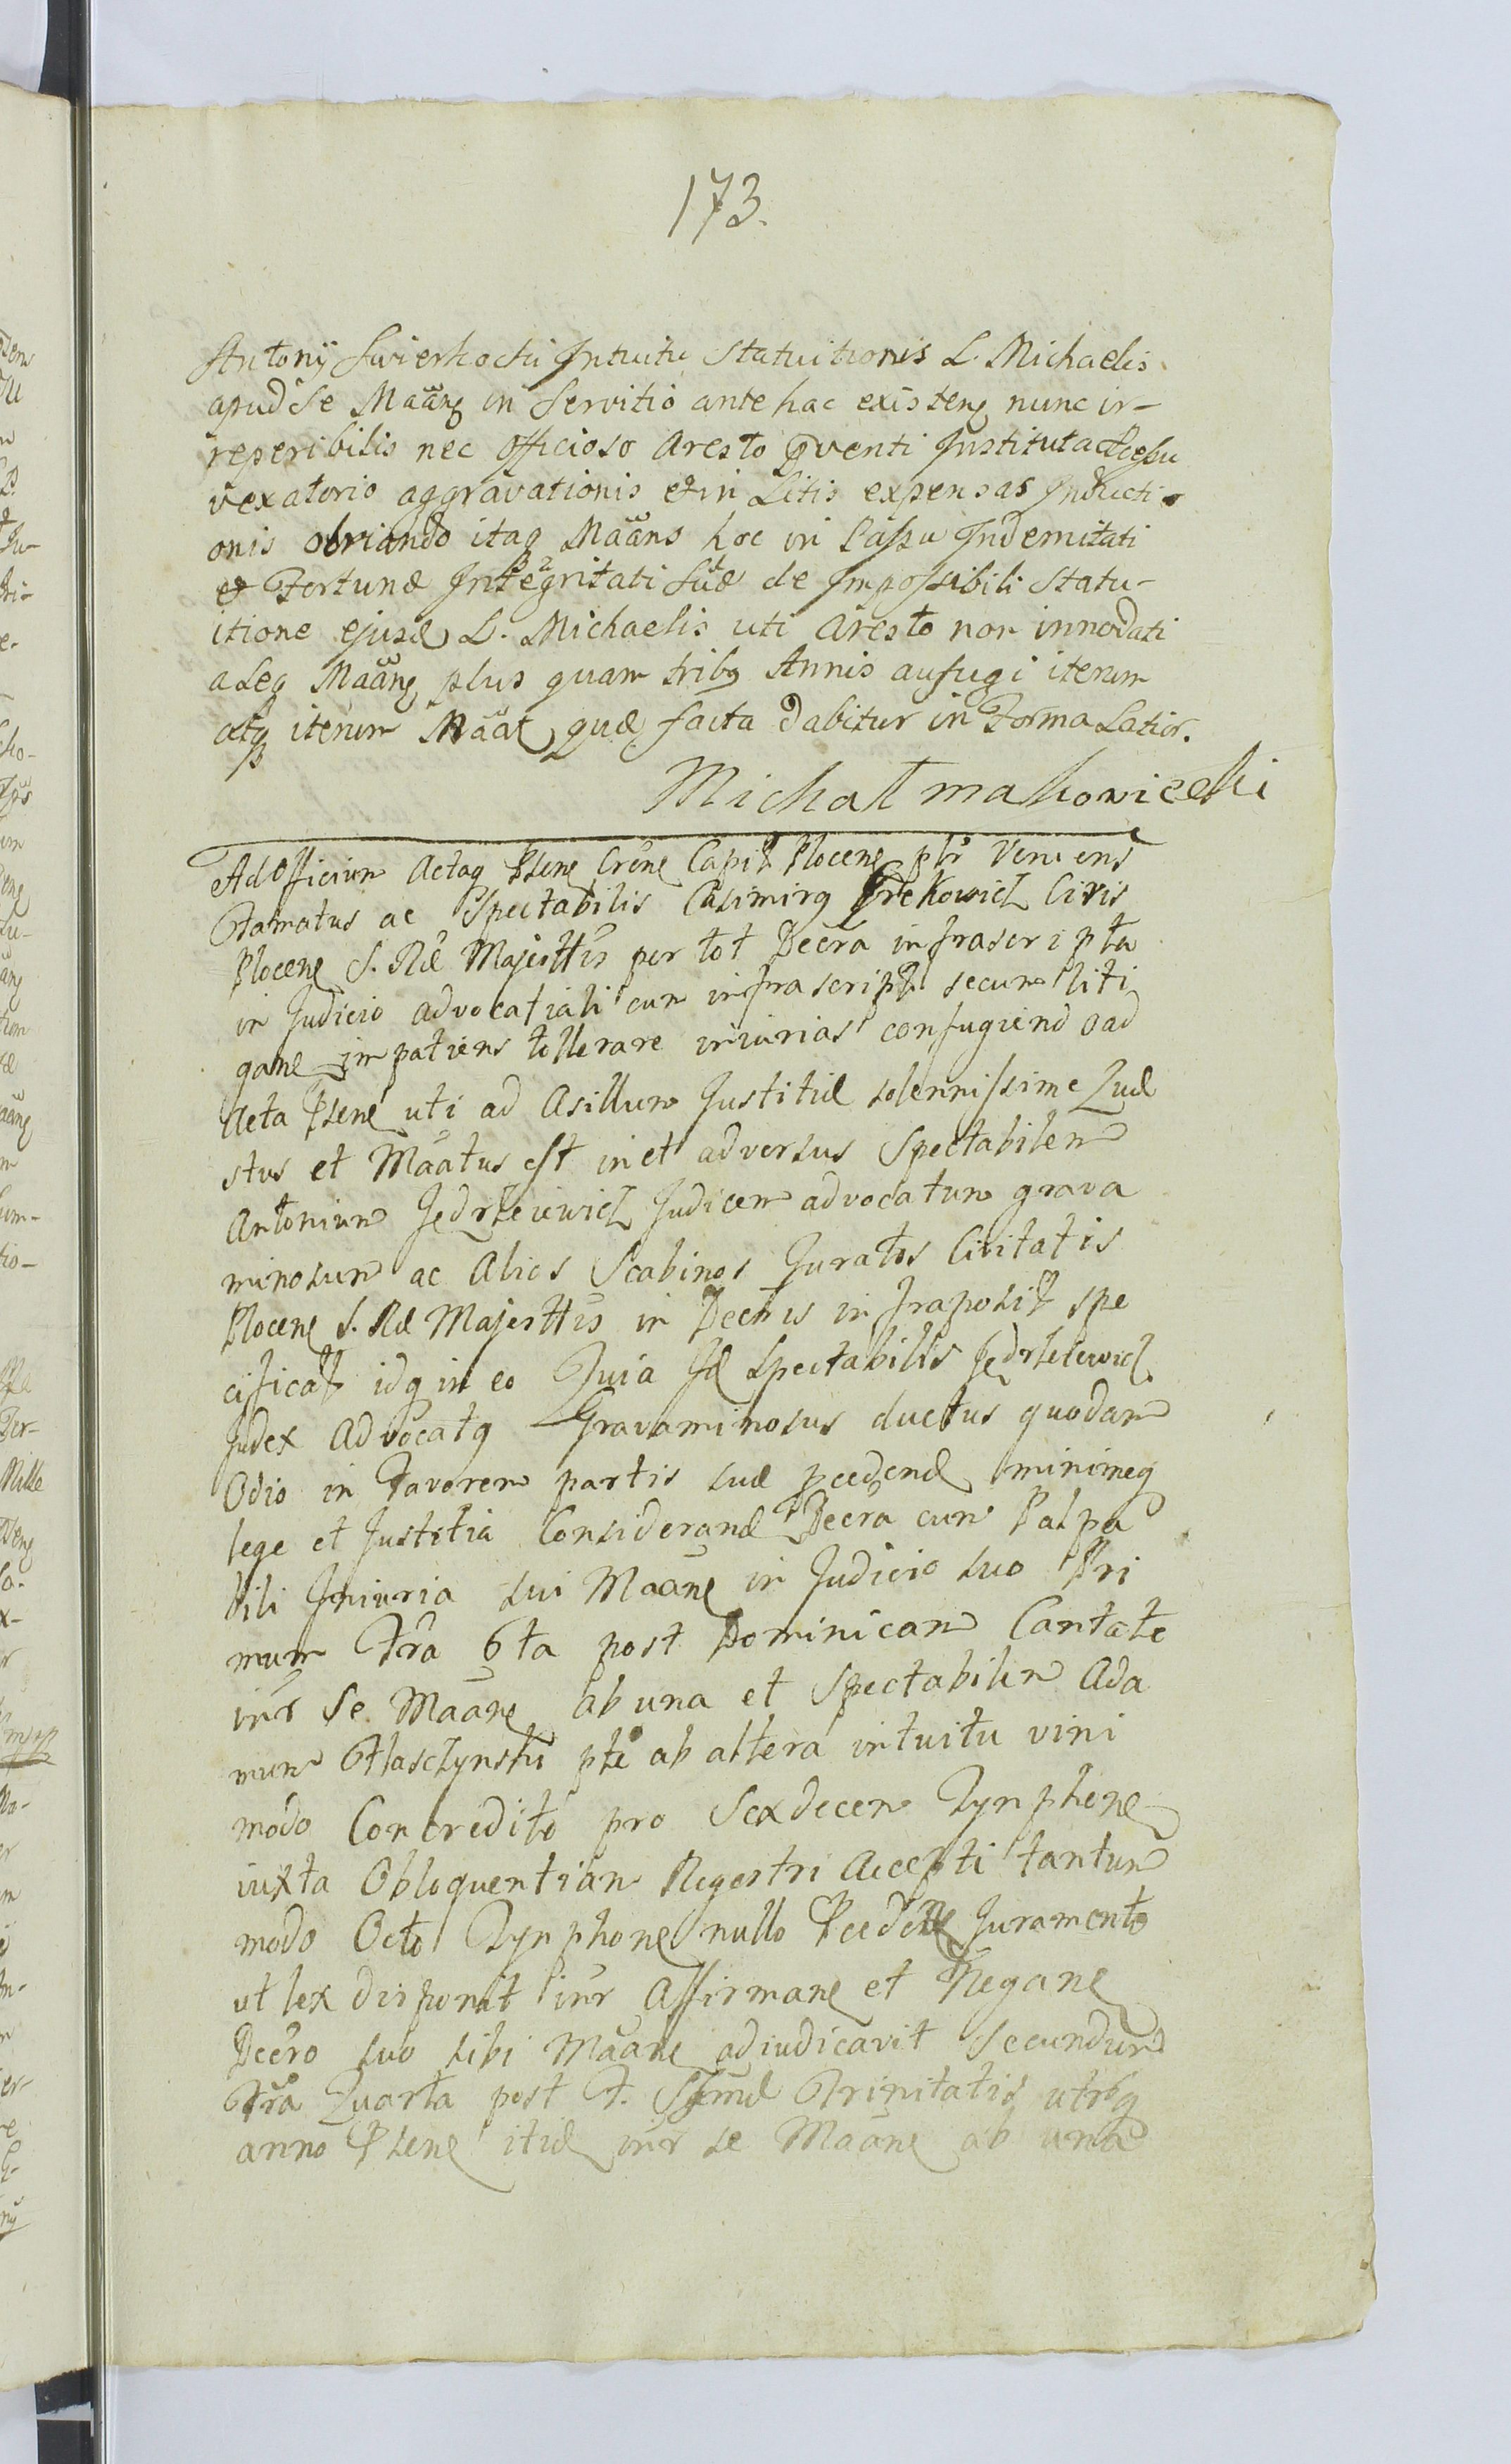 173.
Antonij Swierkocki Intuitu Statuitionis L. Michaelis
apud Se Maãng in Servitio ante hac existeng nunc ir-
reperibilis nec officioso Aresto Pventi Instituta
vexatorio aggravationis et in Litis expensas Inducti-
onis obviando itaq Maãns hoc in Paßu Indemitati
et Fortunæ Integritati Suæ de Impoßibili Statu-
itione ejusd L. Michaelis uti Aresto non innodati
a Seq Maãng plus quam tribq Annis aufugi iterum
atq iterum Maãt, quæ facta dabitur in Forma Latior.
Michał Makowiecki
Ad Officium Actaq Psene Crẽne Capit Plocene pltr Veniens
Famatus ac Spectabilis Casimirq Frekowicz Civis
Plocene S. Ræ Majesttis per tot Decra infrascripta
in Judicio advocatiali cum infrascript secum liti
gane impatiens tollerare iniurias confugiendo ad
Acta Psene uti ad Asillum Justitiæ solennißime Quæ
stus et Maãtus est in et adversus Spectabilem
Antonium Jędrzeiewicz Judicem advocatum grava
minosum ac Alios Scabinos Juratos Civitatis
Plocene S. Ræ Majesttis in Decris infraposit spe
cificat idq in eo Quia Id Spectabilis Jędrzeiewicz
Judex Advocatq Gravaminosus ductus quodam
Odio in Favorem partis suæ pcedend minimeq
lege et Justitia Considerand Decra cum Palpa
bili Iniuria sui Maãne in Judicio suo Pri
mum Fria 6ta post Dominicam Cantate
intr Se Maãne ab una et Spectabilem Ada
mum Własczynski pte ab altera intuitu vini
modo Concredito pro Sexdecem Tynphone
iuxta Obloquentiam Regestri Accepti tantum
modo Octo Tynphone nullo Pcedene Juramento
ut lex disponit intr Affirmane et Negane
Decro suo sibi Maãne adiudicavit Secundum
Fria Quarta post F. SSmæ Trinitatis utrbq
anno Psene itid intr se Maãne ab una